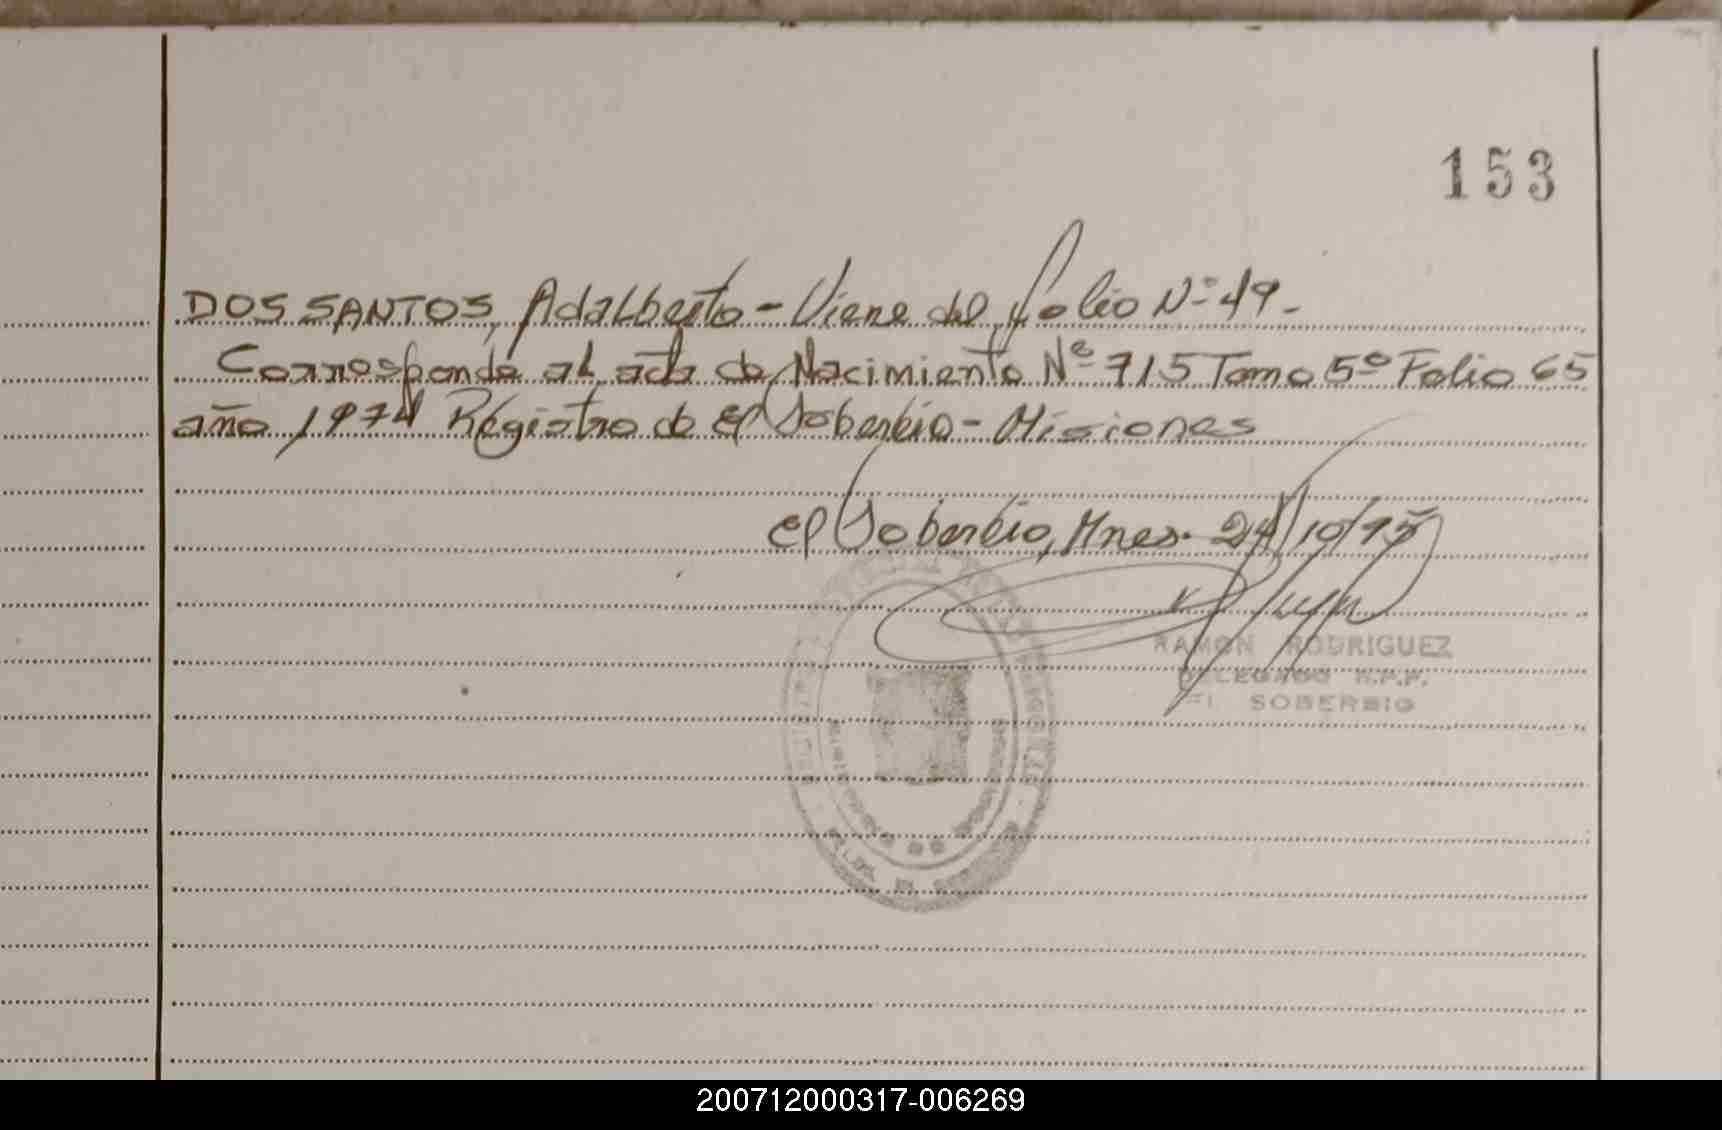 153
DOS SANTOS, Adalberto - Viene del folio Nº 49.-
Corresponde al acta de Nacimiento Nº 715 Tomo 5º Folio 65
año 1974 Registro de El Soberbio - Misiones
El Soberbio, Mnes. 24/10/75
RAMON RODRIGUEZ
DELEGADO R.P.P.
EL SOBERBIO
200712000317-006269